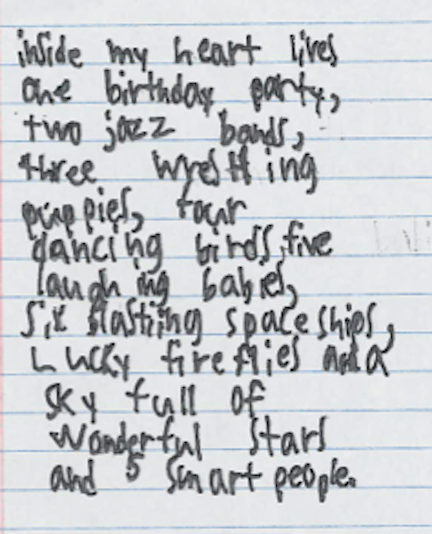 inside my heart lives
one birthday party,
two jazz bands,
three wrestling
puppies, four
dancing birds, five
laughing babies,
six blasting spaceships,
Lucky fireflies and a
sky full of
wonderful stars
and 5 smart people.